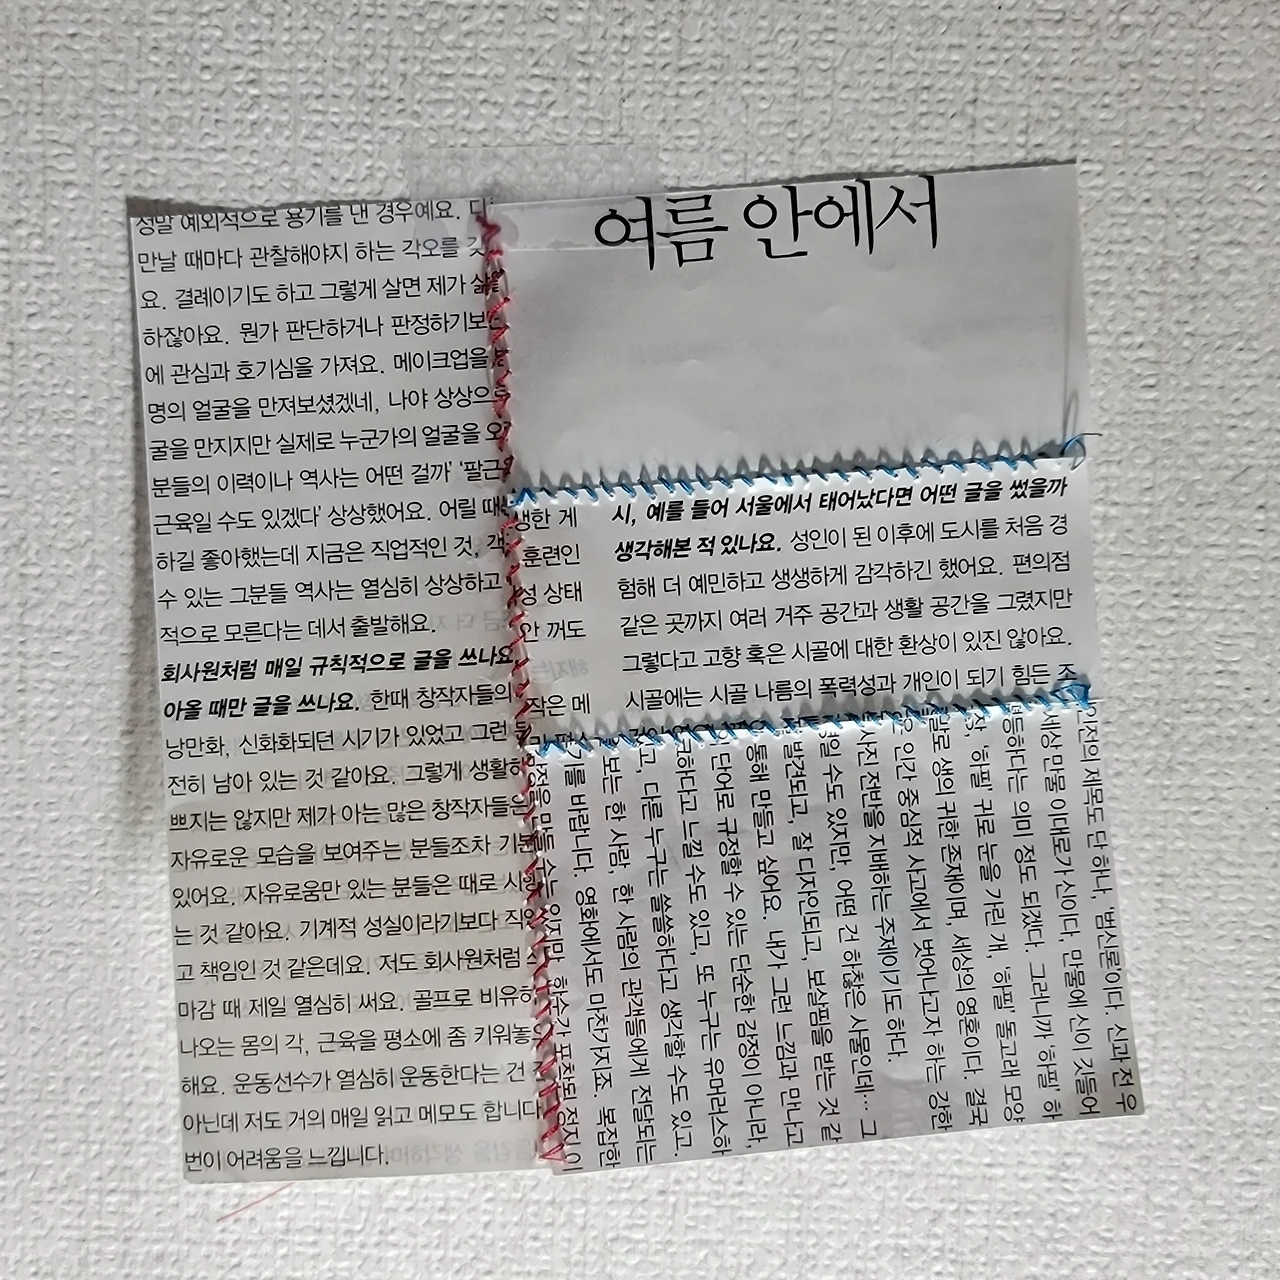 정말 예외적으로 용기를 낸 경우예요.
만날 때마다 관찰해야지 하는 각오를
요. 결례이기도 하고 그렇게 살면 제가
하잖아요. 뭔가 판단하거나 판정하기보다
에 관심과 호기심을 가져요. 메이크업을
명의 얼굴을 만져보셨겠네, 나야 상상으로
굴을 만지지만 실제로 누군가의 얼굴을
분들의 이력이나 역사는 어떤 걸까' '팔근
근육일 수도 있겠다' 상상했어요. 어릴 때
하길 좋아했는데 지금은 직업적인 것,
수 있는 그분들 역사는 열심히 상상하고
적으로 모른다는 데서 출발해요.
회사원처럼 매일 규칙적으로 글을 쓰나요,
아올 때만 글을 쓰나요. 한때 창작자들의
낭만화, 신화화되던 시기가 있었고 그런
전히 남아 있는 것 같아요. 그렇게 생활하
쁘지는 않지만 제가 아는 많은 창작자들은
자유로운 모습을 보여주는 분들조차 기본
있어요. 자유로움만 있는 분들은 때로
는 것 같아요. 기계적 성실이라기보다
고 책임인 것 같은데요. 저도 회사원처럼
마감 때 제일 열심히 써요. 골프로 비유하
나오는 몸의 각, 근육을 평소에 좀 키워놓
해요. 운동선수가 열심히 운동한다는 건
아닌데 저도 거의 매일 읽고 메모도 합니다
번이 어려움을 느낍니다.
여름 안에서
생한 게
훈련인
성 상태
안 꺼도
작은 메
시, 예를 들어 서울에서 태어났다면 어떤 글을 썼을까
생각해본 적 있나요. 성인이 된 이후에 도시를 처음 경
험해 더 예민하고 생생하게 감각하긴 했어요. 편의점
같은 곳까지 여러 거주 공간과 생활 공간을 그렸지만
그렇다고 고향 혹은 시골에 대한 환상이 있진 않아요.
시골에는 시골 나름의 폭력성과 개인이 되기 힘든 조
인전의 제목도 단 하나, '범신론'이다. 신과 전 우
세상 만물 이대로가 신이다, 만물에 신이 깃들어
등등하다는 의미 정도 되겠다. 그러니까 '하찮' 하
'하찮' 귀로 눈을 가린 개, '하찮' 돌고래 모양
말로 생의 귀한 존재이며, 세상의 영혼이다. 결국
은 인간 중심적 사고에서 벗어나고자 하는 강한
사진 전반을 지배하는 주제이기도 하다.
별일 수도 있지만, 어떤 건 하찮은 사물인데… 그
발견되고, 잘 디자인되고, 보살핌을 받는 것 같
통해 만들고 싶어요. 내가 그런 느낌과 만나고
단어로 규정할 수 있는 단순한 감정이 아니라,
하다고 느낄 수도 있고, 또 누구는 유머러스하
고, 다른 누구는 쓸쓸하다고 생각할 수도 있고.
보는 한 사람, 한 사람의 관객들에게 전달되는
기를 바랍니다. 영화에서도 마찬가지죠. 복잡한
정을 만들 수는 있지만, 향수가 포착된 정지 이